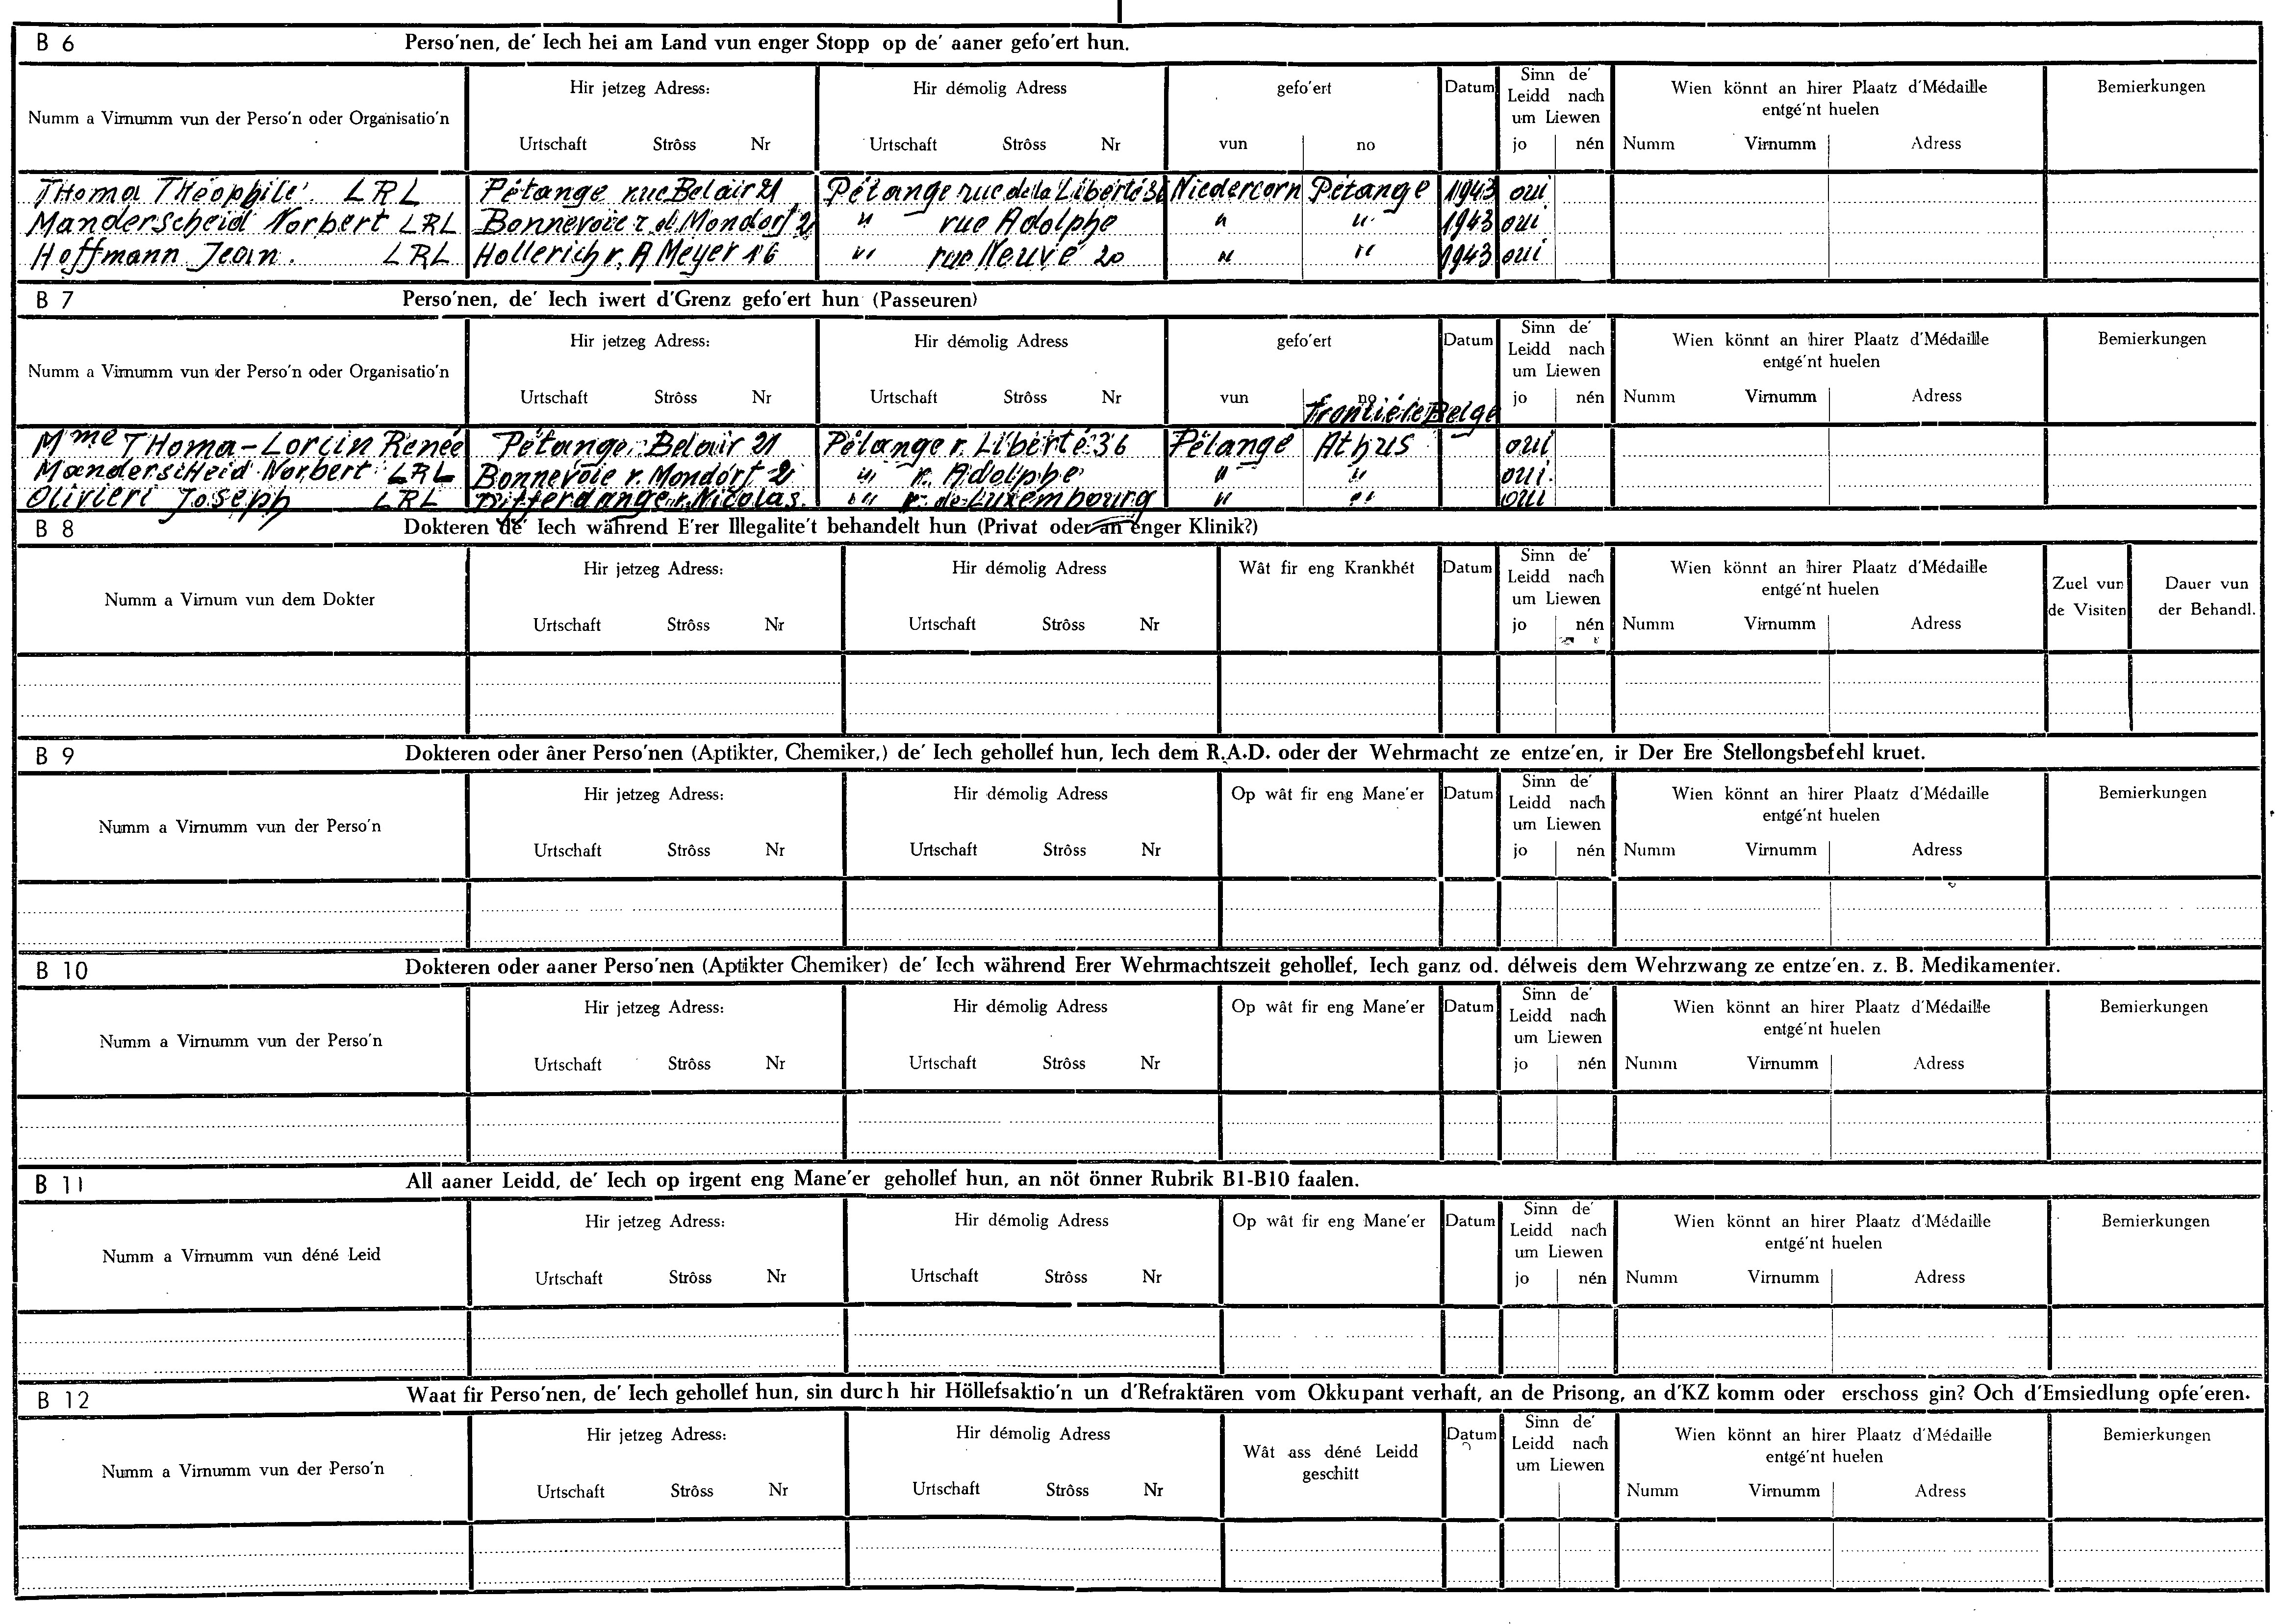 B 6 Perso'nen, de' Iech hei am Land vun enger Stopp op de' aaner gefo'ert hun.
Numm a Virnumm vun der Perso'n oder Organisatio'n Hir jetzeg Adress: Hir démolig Adress gefo'ert Datum Sinn de' Leidd nach um Liewen Wien könnt an hirer Plaatz d'Médaille entgé'nt huelen Bemierkungen
Urtschaft Strôss Nr Urtschaft Strôss Nr vun no jo nén Numm Virnumm Adress
THoma THéophile. LRL Pétange rue Belair 21 Pétange rue de la Liberté 36 Niedercorn Pétange 1943 oui
Manderscheid Norbert LRL Bonnevoie r. d. Mondorf 2 " rue Adolphe " " 1943 oui
Hoffmann Jean. LRL Hollerich r. A Meyer 16 " rue Neuve 20 " " 1943 oui
B 7 Perso'nen, de' Iech iwert d'Grenz gefo'ert hun (Passeuren)
Numm a Virnumm vun der Perso'n oder Organisatio'n Hir jetzeg Adress: Hir démolig Adress gefo'ert Datum Sinn de' Leidd nach um Liewen Wien könnt an hirer Plaatz d'Médaille entgé'nt huelen Bemierkungen
Urtschaft Strôss Nr Urtschaft Strôss Nr vun no jo nén Numm Virnumm Adress
Frontière Belge
Mme THoma-Lorcin Renée Pétange Belair 21 Pétange r. Liberté 36 Pétange Athus oui
ManderscHeid Norbert LRL Bonnevoie r. Mondorf 2 " r. Adolphe " " oui
Olivieri Joseph LRL Differdange r. Nicolas. " r. de Luxembourg " " oui
B 8 Dokteren de' Iech während E'rer Illegalite't behandelt hun (Privat oder an enger Klinik?)
Numm a Virnum vun dem Dokter Hir jetzeg Adress: Hir démolig Adress Wât fir eng Krankhét Datum Sinn de' Leidd nach um Liewen Wien könnt an hirer Plaatz d'Médaille entgé'nt huelen Zuel vun de Visiten Dauer vun der Behandl.
Urtschaft Strôss Nr Urtschaft Strôss Nr jo nén Numm Virnumm Adress
B 9 Dokteren oder âner Perso'nen (Aptikter, Chemiker,) de' Iech gehollef hun, Iech dem R.A.D. oder der Wehrmacht ze entze'en, ir Der Ere Stellongsbefehl kruet.
Numm a Virnumm vun der Perso'n Hir jetzeg Adress: Hir démolig Adress Op wât fir eng Mane'er Datum Sinn de' Leidd nach um Liewen Wien könnt an hirer Plaatz d'Médaille entgé'nt huelen Bemierkungen
Urtschaft Strôss Nr Urtschaft Strôss Nr jo nén Numm Virnumm Adress
B 10 Dokteren oder aaner Perso'nen (Aptikter Chemiker) de' Iech während Erer Wehrmachtszeit gehollef, Iech ganz od. délweis dem Wehrzwang ze entze'en. z. B. Medikamenter.
Numm a Virnumm vun der Perso'n Hir jetzeg Adress: Hir démolig Adress Op wât fir eng Mane'er Datum Sinn de' Leidd nach um Liewen Wien könnt an hirer Plaatz d'Médaille entgé'nt huelen Bemierkungen
Urtschaft Strôss Nr Urtschaft Strôss Nr jo nén Numm Virnumm Adress
B 11 All aaner Leidd, de' Iech op irgent eng Mane'er gehollef hun, an nöt önner Rubrik B1-B10 faalen.
Numm a Virnumm vun déné Leid Hir jetzeg Adress: Hir démolig Adress Op wât fir eng Mane'er Datum Sinn de' Leidd nach um Liewen Wien könnt an hirer Plaatz d'Médaille entgé'nt huelen Bemierkungen
Urtschaft Strôss Nr Urtschaft Strôss Nr jo nén Numm Virnumm Adress
B 12 Waat fir Perso'nen, de' Iech gehollef hun, sin durch hir Höllefsaktio'n un d'Refraktären vom Okkupant verhaft, an de Prisong, an d'KZ komm oder erschoss gin? Och d'Emsiedlung opfe'eren.
Numm a Virnumm vun der Perso'n Hir jetzeg Adress: Hir démolig Adress Wât ass déné Leidd geschitt Datum Sinn de' Leidd nach um Liewen Wien könnt an hirer Plaatz d'Médaille entgé'nt huelen Bemierkungen
Urtschaft Strôss Nr Urtschaft Strôss Nr Numm Virnumm Adress